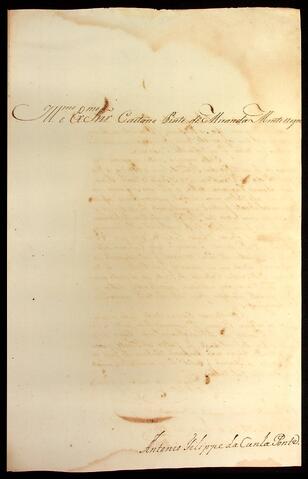 Illmo e Exmo Snr Caetano Pinto de Miranda Montenegro
Antonio Filippe da Cunha Ponte